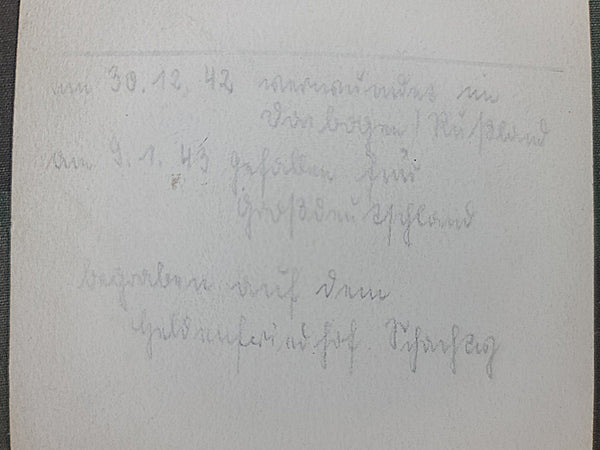 am 30.12.42 verwundet im
Donbogen/Rußland
am 9.1.43 gefallen für
Großdeutschland
begraben auf dem
Heldenfriedhof